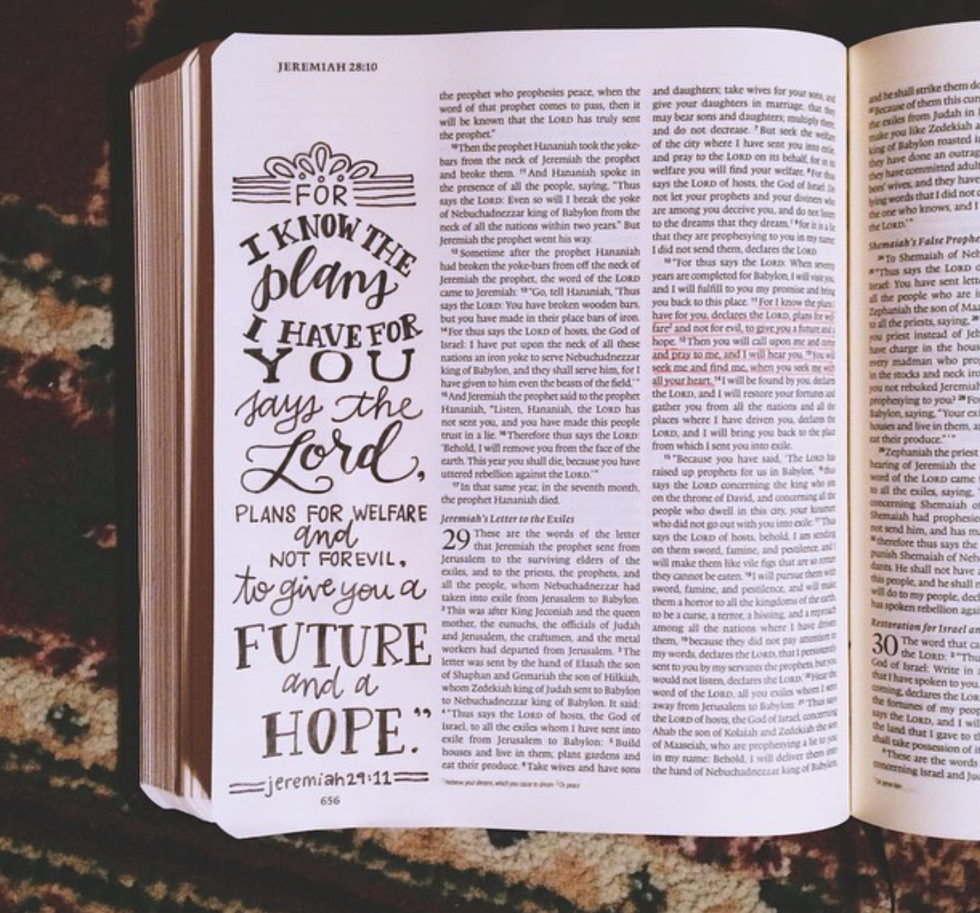 JEREMIAH 28:10
FOR
I KNOW THE
plans
I HAVE FOR
YOU
says the
Lord,
PLANS FOR WELFARE
and
NOT FOR EVIL,
to give you a
FUTURE
and a
HOPE."
jeremiah 29:11
656
the prophet who prophesies peace, when the
word of that prophet comes to pass, then it
will be known that the LORD has truly sent
the prophet."
10 Then the prophet Hananiah took the yoke-
bars from the neck of Jeremiah the prophet
and broke them. 11 And Hananiah spoke in
the presence of all the people, saying, "Thus
says the LORD: Even so will I break the yoke
of Nebuchadnezzar king of Babylon from the
neck of all the nations within two years." But
Jeremiah the prophet went his way.
12 Sometime after the prophet Hananiah
had broken the yoke-bars from off the neck of
Jeremiah the prophet, the word of the LORD
came to Jeremiah: 13 "Go, tell Hananiah, 'Thus
says the LORD: You have broken wooden bars,
but you have made in their place bars of iron.
14 For thus says the LORD of hosts, the God of
Israel: I have put upon the neck of all these
nations an iron yoke to serve Nebuchadnezzar
king of Babylon, and they shall serve him, for I
have given to him even the beasts of the field.'"
15 And Jeremiah the prophet said to the prophet
Hananiah, "Listen, Hananiah, the LORD has
not sent you, and you have made this people
trust in a lie. 16 Therefore thus says the LORD:
'Behold, I will remove you from the face of the
earth. This year you shall die, because you have
uttered rebellion against the LORD.'"
17 In that same year, in the seventh month,
the prophet Hananiah died.
Jeremiah's Letter to the Exiles
29 These are the words of the letter
that Jeremiah the prophet sent from
Jerusalem to the surviving elders of the
exiles, and to the priests, the prophets, and
all the people, whom Nebuchadnezzar had
taken into exile from Jerusalem to Babylon.
2 This was after King Jeconiah and the queen
mother, the eunuchs, the officials of Judah
and Jerusalem, the craftsmen, and the metal
workers had departed from Jerusalem. 3 The
letter was sent by the hand of Elasah the son
of Shaphan and Gemariah the son of Hilkiah,
whom Zedekiah king of Judah sent to Babylon
to Nebuchadnezzar king of Babylon. It said:
4 "Thus says the LORD of hosts, the God of
Israel, to all the exiles whom I have sent into
exile from Jerusalem to Babylon: 5 Build
houses and live in them; plant gardens and
eat their produce. 6 Take wives and have sons
and daughters; take wives for your sons, and
give your daughters in marriage, that they
may bear sons and daughters; multiply there,
and do not decrease. 7 But seek the welfare
of the city where I have sent you into exile,
and pray to the LORD on its behalf, for in its
welfare you will find your welfare. 8 For thus
says the LORD of hosts, the God of Israel: Do
not let your prophets and your diviners who
are among you deceive you, and do not listen
to the dreams that they dream, 9 for it is a lie
that they are prophesying to you in my name;
I did not send them, declares the LORD.
10 "For thus says the LORD: When seventy
years are completed for Babylon, I will visit you,
and I will fulfill to you my promise and bring
you back to this place. 11 For I know the plans I
have for you, declares the LORD, plans for wel-
fare and not for evil, to give you a future and a
hope. 12 Then you will call upon me and come
and pray to me, and I will hear you. 13 You will
seek me and find me, when you seek me with
all your heart. 14 I will be found by you, declares
the LORD, and I will restore your fortunes and
gather you from all the nations and all the
places where I have driven you, declares the
LORD, and I will bring you back to the place
from which I sent you into exile.
15 "Because you have said, 'The LORD has
raised up prophets for us in Babylon,' 16 thus
says the LORD concerning the king who sits
on the throne of David, and concerning all the
people who dwell in this city, your kinsmen
who did not go out with you into exile: 17 'Thus
says the LORD of hosts, behold, I am sending
on them sword, famine, and pestilence, and I
will make them like vile figs that are so rotten
they cannot be eaten. 18 I will pursue them with
sword, famine, and pestilence, and will make
them a horror to all the kingdoms of the earth,
to be a curse, a terror, a hissing, and a reproach
among all the nations where I have driven
them, 19 because they did not pay attention to
my words, declares the LORD, that I persistently
sent to you by my servants the prophets, but you
would not listen, declares the LORD.' 20 Hear the
word of the LORD, all you exiles whom I sent
away from Jerusalem to Babylon: 21 'Thus says
the LORD of hosts, the God of Israel, concerning
Ahab the son of Kolaiah and Zedekiah the son
of Maaseiah, who are prophesying a lie to you
in my name: Behold, I will deliver them into
the hand of Nebuchadnezzar king of Babylon,
and he shall strike them
Because of them this
the exiles from Judah in
make you like Zedekiah
king of Babylon roasted
they have done an
they have committed
wives, and they have
lying words that I did not
the one who knows, and I
the LORD.'"
Shemaiah's False
24 To Shemaiah of
25 "Thus says the LORD
Israel: You have sent
all the people who are
Zephaniah the son of
to all the priests, saying,
you priest instead of
have charge in the
every madman who
in the stocks and neck
you not rebuked Jeremiah
prophesying to you? 28
Babylon, saying, "Your
houses and live in them,
eat their produce."'"
29 Zephaniah the priest
hearing of Jeremiah the
word of the LORD came
to all the exiles, saying,
concerning Shemaiah of
Shemaiah had
not send him, and has
therefore thus says the
punish Shemaiah of
dants. He shall not have
this people, and he shall
will do to my people,
has spoken rebellion
Restoration for Israel
30 The word that
the LORD: 2 "Thus
God of Israel: Write in
that I have spoken to you.
coming, declares the
the fortunes of my
says the LORD, and I
the land that I gave to
shall take possession of
4 These are the words
concerning Israel and